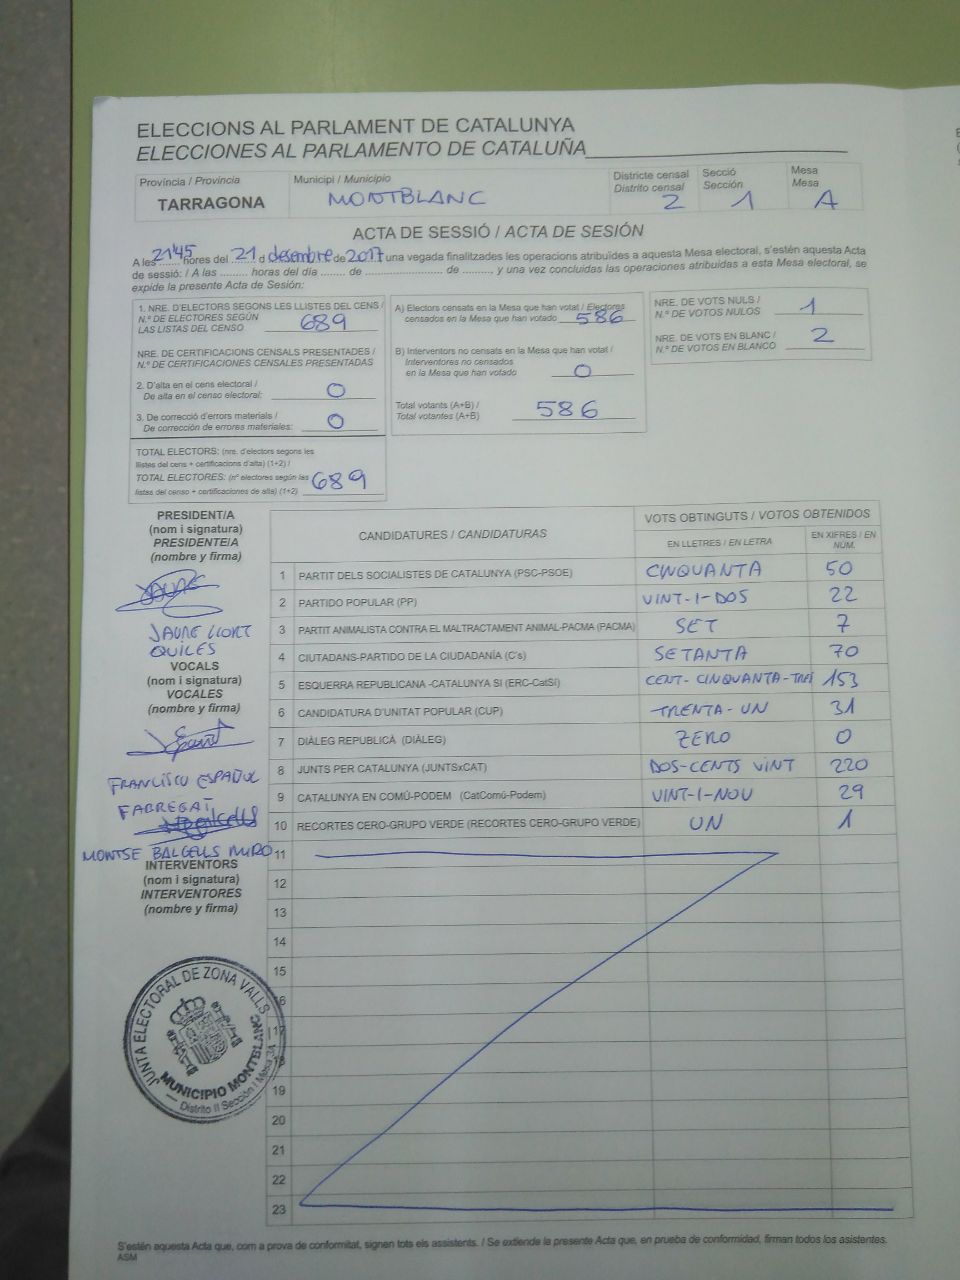 ELECCIONS AL PARLAMENT DE CATALUNYA
ELECCIONES AL PARLAMENTO DE CATALUÑA
Província / Provincia
TARRAGONA
Municipi / Municipio
MONTBLANC
Districte censal
Distrito censal
2
Secció
Sección
1
Mesa
Mesa
A
ACTA DE SESSIÓ / ACTA DE SESIÓN
A les 21'45 hores del 21 d desembre de 2017 una vegada finalitzades les operacions atribuïdes a aquesta Mesa electoral, s'estén aquesta Acta
de sessió: / A las ......... horas del día ....... de ............................ de ........., y una vez concluidas las operaciones atribuidas a esta Mesa electoral, se
expide la presente Acta de Sesión:
1. NRE. D'ELECTORS SEGONS LES LLISTES DEL CENS /
N.º DE ELECTORES SEGÚN
LAS LISTAS DEL CENSO 689
NRE. DE CERTIFICACIONS CENSALS PRESENTADES /
N.º DE CERTIFICACIONES CENSALES PRESENTADAS
2. D'alta en el cens electoral /
De alta en el censo electoral: 0
3. De correcció d'errors materials /
De corrección de errores materiales: 0
TOTAL ELECTORS: (nre. d'electors segons les
llistes del cens + certificacions d'alta) (1+2) /
TOTAL ELECTORES: (nº electores según las
listas del censo + certificaciones de alta) (1+2) 689
A) Electors censats en la Mesa que han votat / Electores
censados en la Mesa que han votado 586
B) Interventors no censats en la Mesa que han votat /
Interventores no censados
en la Mesa que han votado 0
Total votants (A+B) /
Total votantes (A+B) 586
NRE. DE VOTS NULS /
N.º DE VOTOS NULOS 1
NRE. DE VOTS EN BLANC /
N.º DE VOTOS EN BLANCO 2
PRESIDENT/A
(nom i signatura)
PRESIDENTE/A
(nombre y firma)
JAUME LLORT
QUILES
VOCALS
(nom i signatura)
VOCALES
(nombre y firma)
FRANCISCU ESPAÑOL
FABREGAT
MONTSE BALCELLS MIRO
INTERVENTORS
(nom i signatura)
INTERVENTORES
(nombre y firma)
JUNTA ELECTORAL DE ZONA VALLS
MUNICIPIO MONTBLANC
Distrito II Sección I Mesa
CANDIDATURES / CANDIDATURAS
VOTS OBTINGUTS / VOTOS OBTENIDOS
EN LLETRES / EN LETRA
EN XIFRES / EN
NÚM.
1 PARTIT DELS SOCIALISTES DE CATALUNYA (PSC-PSOE) CINQUANTA 50
2 PARTIDO POPULAR (PP) VINT-I-DOS 22
3 PARTIT ANIMALISTA CONTRA EL MALTRACTAMENT ANIMAL-PACMA (PACMA) SET 7
4 CIUTADANS-PARTIDO DE LA CIUDADANÍA (C's) SETANTA 70
5 ESQUERRA REPUBLICANA -CATALUNYA SI (ERC-CatSí) CENT-CINQUANTA-TRES 153
6 CANDIDATURA D'UNITAT POPULAR (CUP) TRENTA-UN 31
7 DIÀLEG REPUBLICÀ (DIÀLEG) ZERO 0
8 JUNTS PER CATALUNYA (JUNTSxCAT) DOS-CENTS VINT 220
9 CATALUNYA EN COMÚ-PODEM (CatComú-Podem) VINT-I-NOU 29
10 RECORTES CERO-GRUPO VERDE (RECORTES CERO-GRUPO VERDE) UN 1
11
12
13
14
15
16
17
18
19
20
21
22
23
S'estén aquesta Acta que, com a prova de conformitat, signen tots els assistents. / Se extiende la presente Acta que, en prueba de conformidad, firman todos los asistentes.
ASM